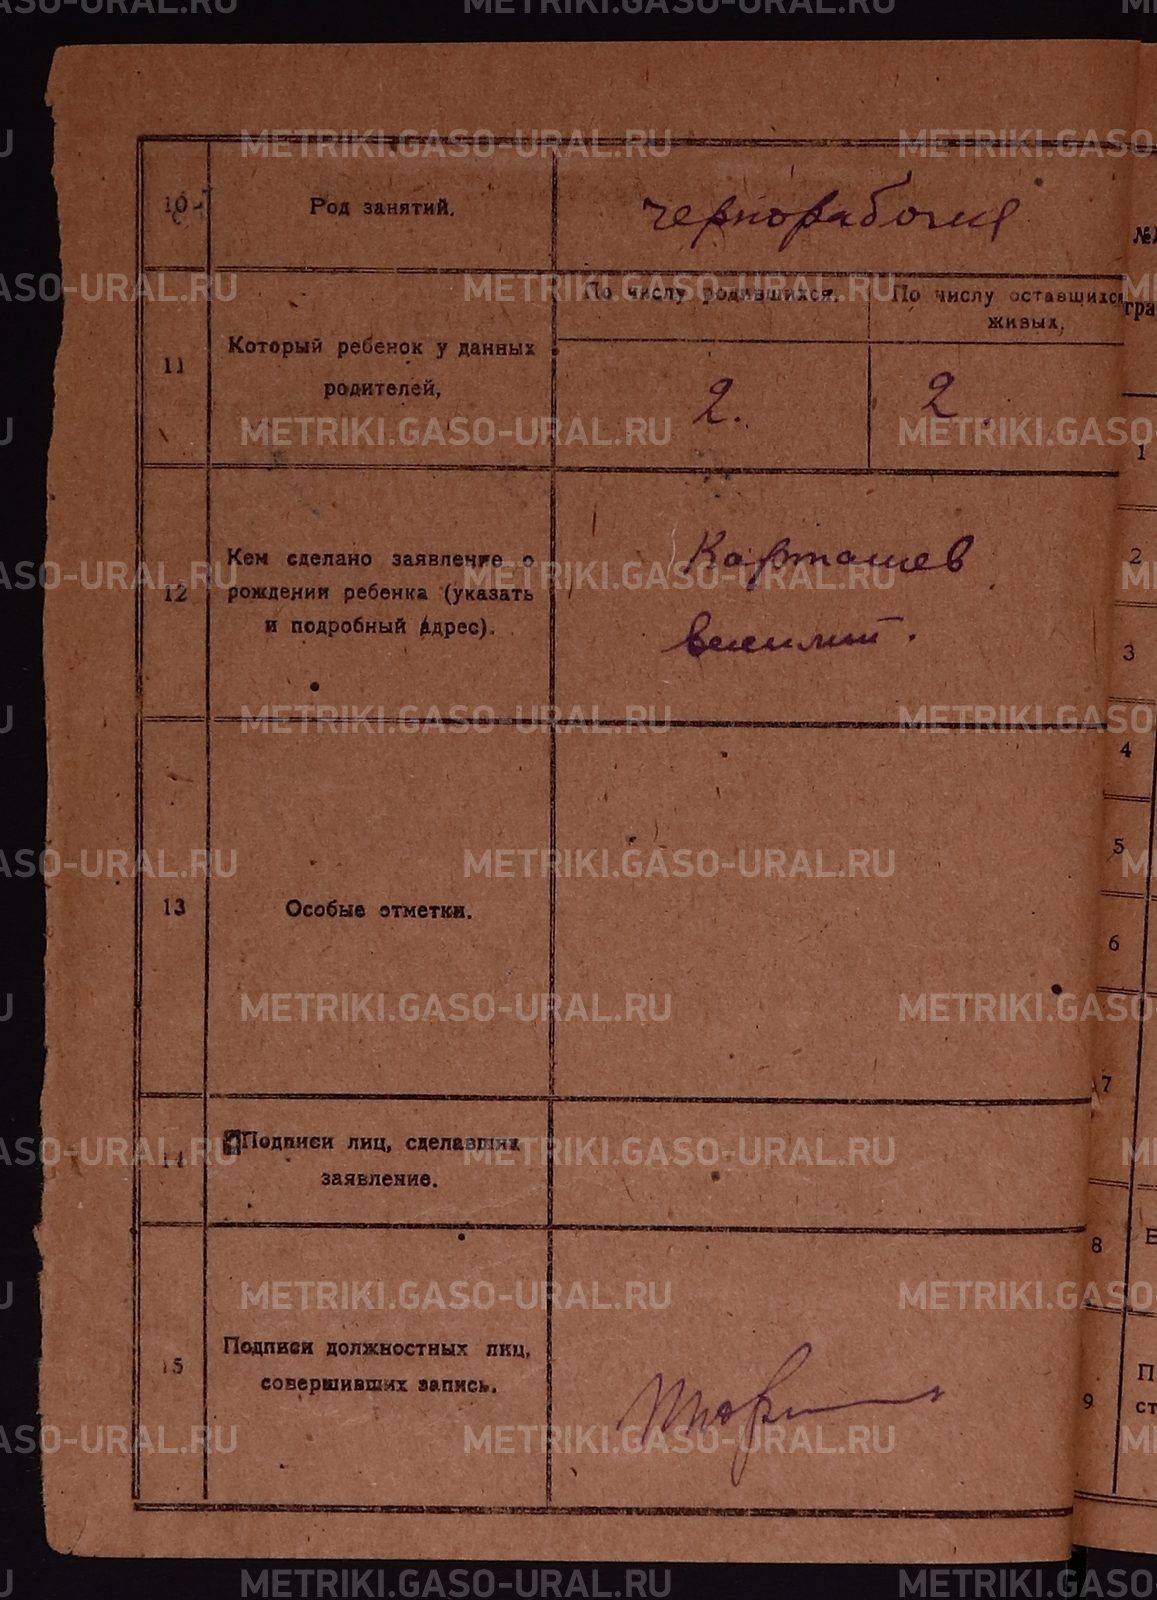 METRIKI.GASO-URAL.RU
10
Род занятий.
чернорабочий
11
Который ребенок у данных
родителей,
По числу родившихся,
По числу оставшихся
живых,
2.
2.
12
Кем сделано заявление о
рождении ребенка (указать
и подробный адрес).
Карташев
Василий.
13
Особые отметки.
14
Подписи лиц, сделавших
заявление.
15
Подписи должностных лиц,
совершивших запись.
№№
гра
1
2
3
4
5
6
7
8
9
В
П
ст